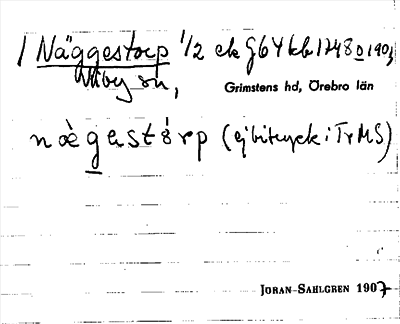 1 Näggestorp 1/2 ek J6 4 kb 1748 o 1903
Viby sn,
Grimstens hd, Örebro län
næ̀gastórp (ej bitryck i TrMS)
JÖRAN SAHLGREN 1907